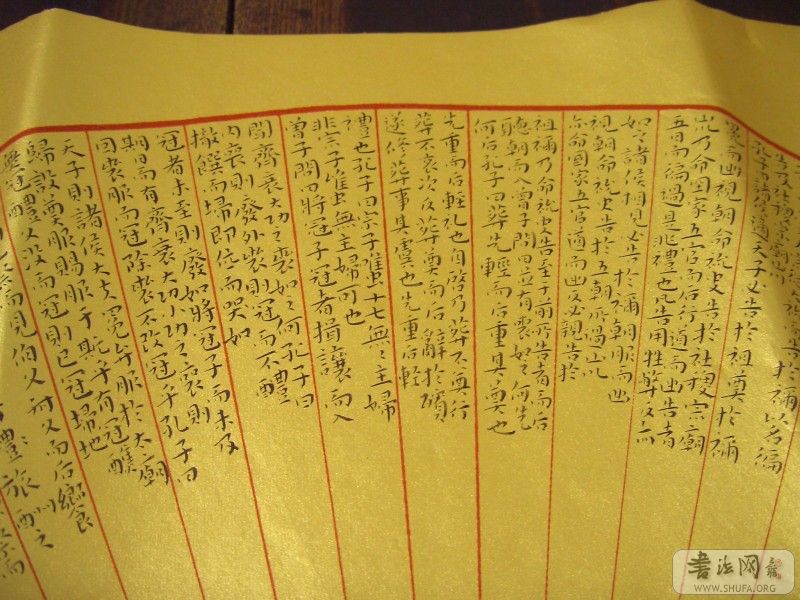 孔子曰諸侯適天子必告於祖奠於禰
冕而出視朝命祝史告於社稷宗廟
山川乃命國家五官而后行道而出告者
五日而徧過是非禮也凡告用牲幣反亦
如之諸侯相見必告於禰朝服而出
視朝命祝史告於五廟所過山川
亦命國家五官道而出反必親告於
祖禰乃命祝史告至于前所告者而后
聽朝而入曾子問曰並有喪如之何何先
何后孔子曰葬先輕而后重其奠也
先重而后輕禮也自啟及葬不奠行
葬不哀次反葬奠而后辭於殯
遂修葬事其虞也先重后輕
禮也孔子曰宗子雖七十無無主婦
非宗子雖無主婦可也
曾子問曰將冠子冠者揖讓而入
聞齊衰大功之喪如之何孔子曰
內喪則廢外喪則冠而不醴
撤饌而埽即位而哭如
冠者未至則廢如將冠子而未及
期日而有齊衰大功小功之喪則
因喪服而冠除喪不改冠乎孔子曰
天子賜諸侯大夫冕弁服於大廟
歸設奠服賜服于斯乎有冠醮
無冠醴父沒而冠則已冠埽地
而見伯父叔父而后饗
書法网
WWW.SHUFA.ORG